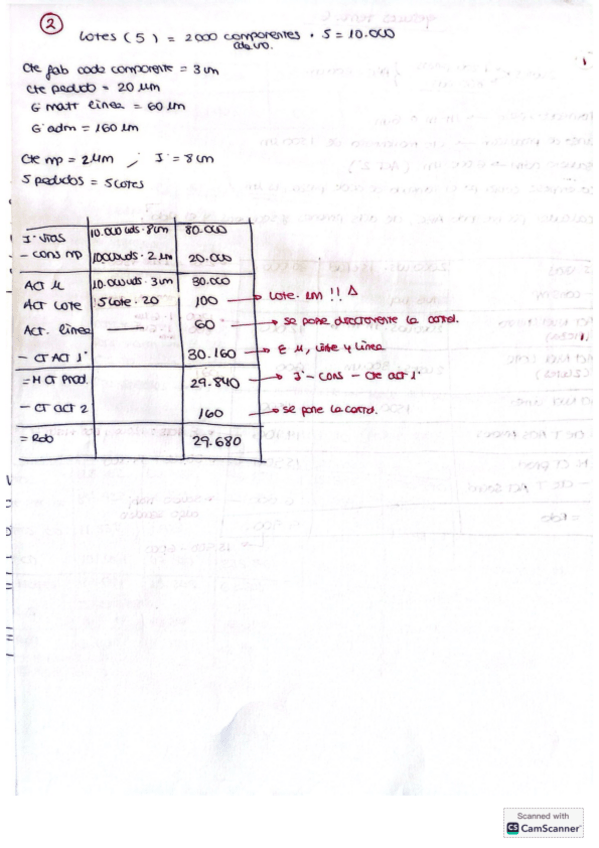 2
Lotes (5) = 2000 componentes · 5 = 10.000
cada uno.
Cte fab cada componente = 3 um
Cte pedido = 20 um
G matt linea = 60 um
G adm = 160 um
Cte mp = 2 um / I' = 8 um
5 pedidos = 5 lotes
I' Vtas 10.000 uds · 8 um 80.000
- Cons mp 10.000 uds · 2 um 20.000
Act µ 10.000 uds · 3 um 30.000
Act Lote 5 lote · 20 100 → Lote · um !! Δ
Act. linea 60 → se pone directamente la cantid.
- CT ACT 1' 30.160 → Σ µ, lote y linea
= M Ct Prod. 29.840 → I' - Cons - Cte act 1'
- CT ACT 2 160 → se pone la cantid.
= Rdo 29.680
Scanned with
CS CamScanner